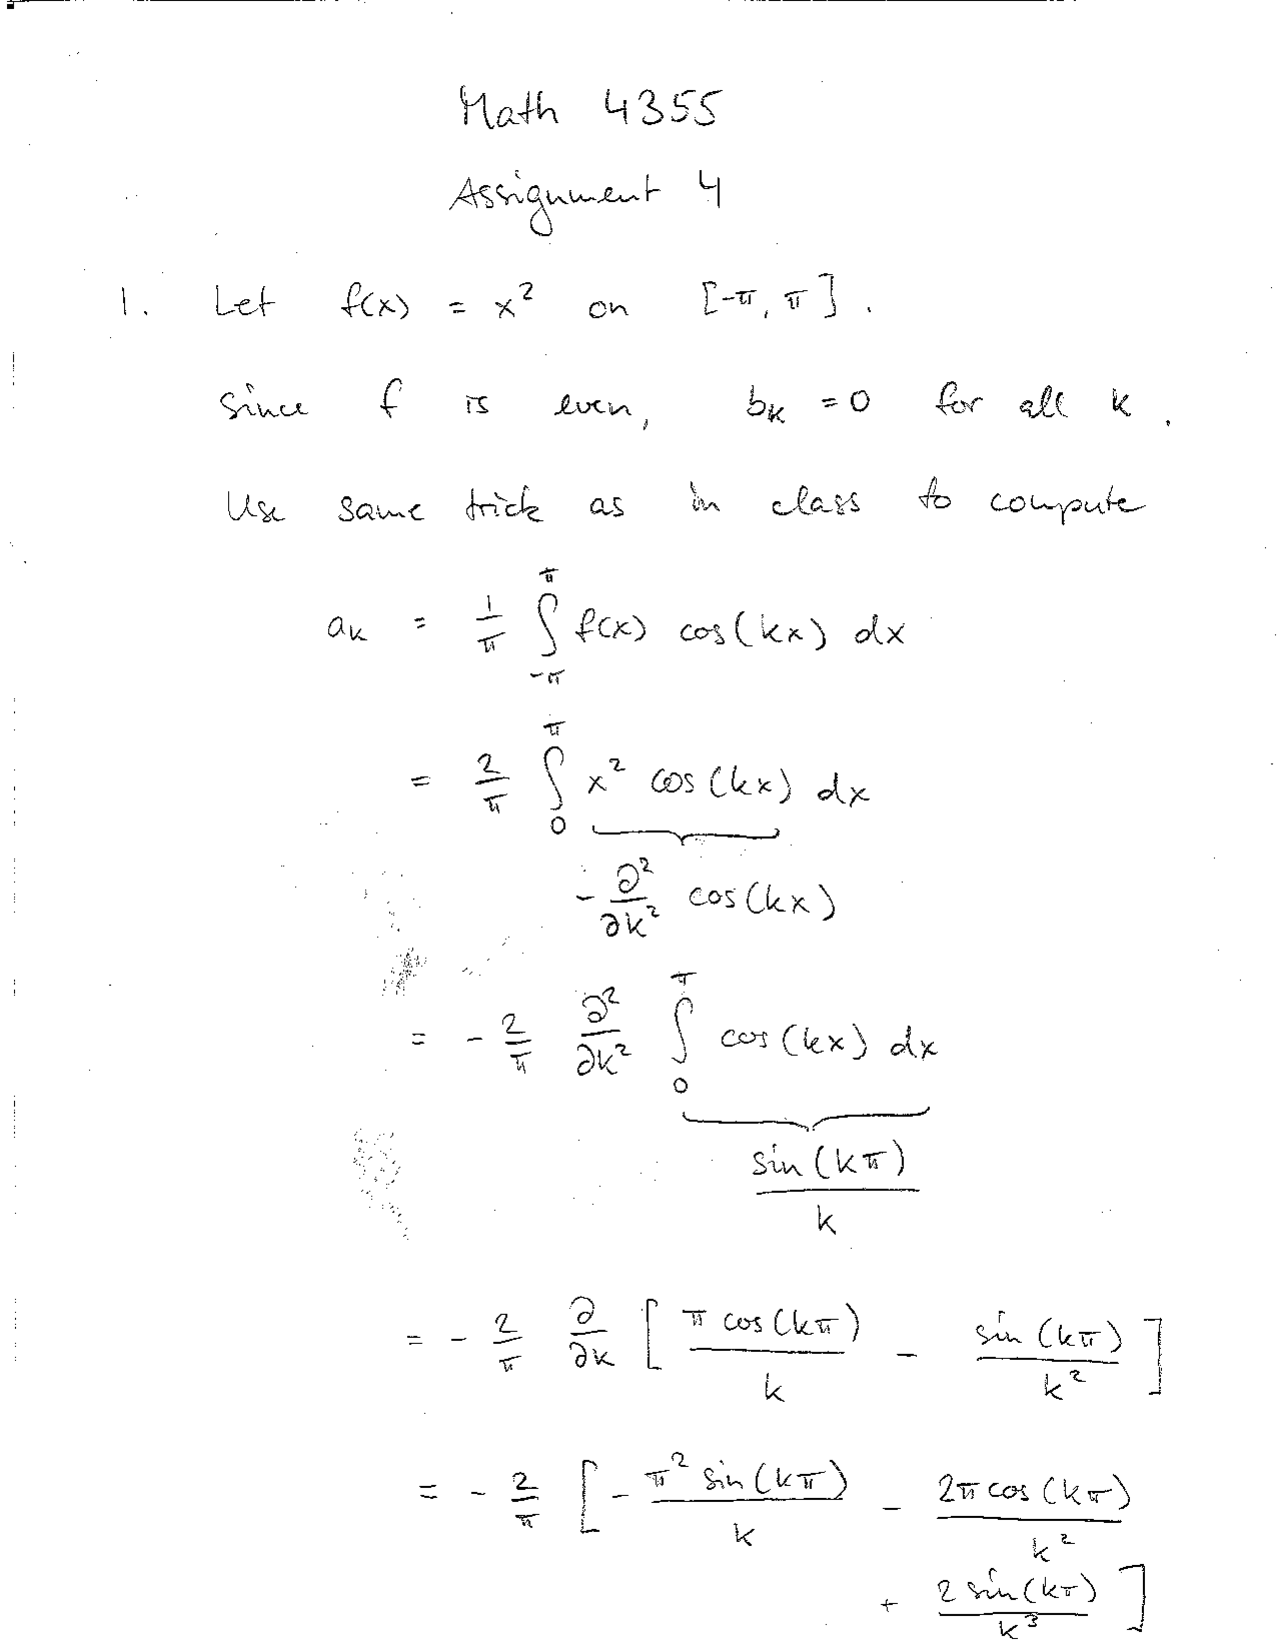 Math 4355
Assignment 4
1. Let f(x) = x² on [-π, π].
Since f is even, b_k = 0 for all k.
Use same trick as in class to compute
a_k = 1/π ∫_{-π}^{π} f(x) cos(kx) dx
= 2/π ∫_0^π x² cos(kx) dx
- ∂²/∂k² cos(kx)
= - 2/π ∂²/∂k² ∫_0^π cos(kx) dx
sin(kπ)/k
= - 2/π ∂/∂k [ π cos(kπ)/k - sin(kπ)/k² ]
= - 2/π [ - π² sin(kπ)/k - 2π cos(kπ)/k²
+ 2 sin(kπ)/k³ ]